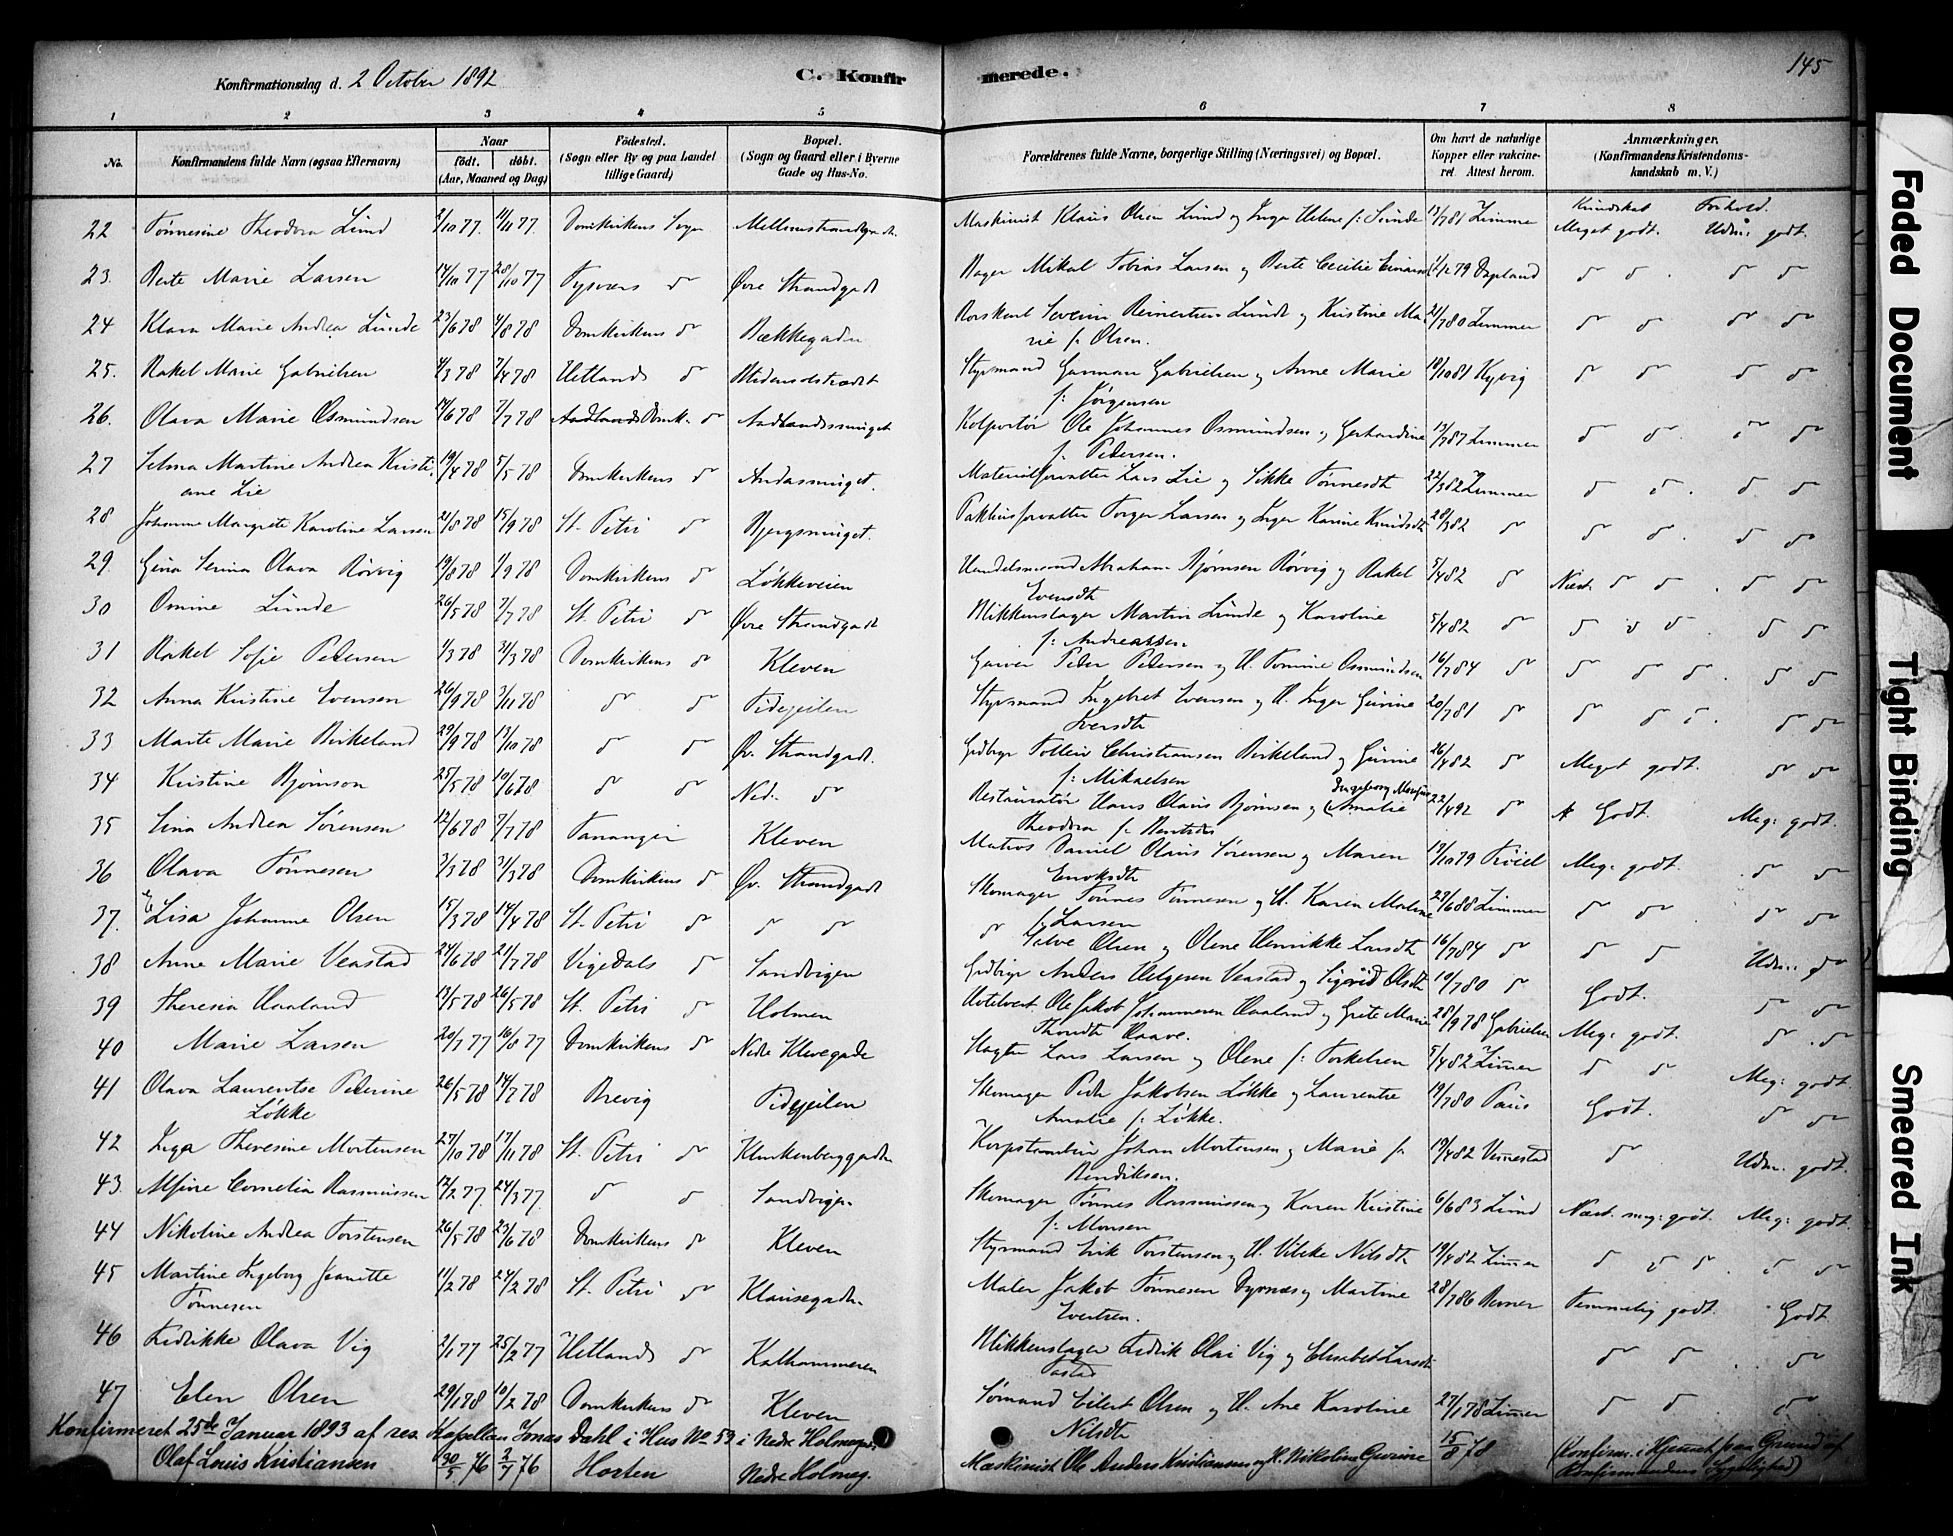 Konfirmationsdag d. 2 October 1892 C. Konfirmerede. 145
1 2 3 4 5 6 7 8
No. Konfirmandens fulde Navn (ogsaa Efternavn) Naar født. døbt. (Aar, Maaned og Dag) Fødested. (Sogn eller By og paa Landet tillige Gaard) Bopæl. (Sogn og Gaard eller i Byerne Gade og Hus-No. Forældrenes fulde Navne, borgerlige Stilling (Næringsvei) og Bopæl. Om havt de naturlige Kopper eller vakcineret. Attest herom. Anmærkninger. (Konfirmandens Kristendomskundskab m. V.)
Kundskab Forhold.
22 Tønnesine Theodora Lund 2/10 77. 11/11 77. Domkirkens Sogn Maskinist Klaus Olsen Lund og Inger Helene f: Lunde 13/7 81 Zimmer Meget godt. Udm: godt.
23. Berte Marie Larsen 14/10 77 28/10 77 Tysvær do Øvre Strandgade Bager Mikal Tobias Larsen og Berte Cecilie do do do do
24 Klara Marie Andrea Lunde 23/6 78 4/8 78 Domkirkens do Bækkegaden Severin Reinertsen Lunde og Kristine Ma 21/7 80 Zimmer do do do do
rie f: Olsen.
25. Rakel Marie Gabrielsen 4/3 78 7/4 78 Hetlands do Styrmand Gabrielsen og Anne Marie 19/10 81 Kyvig do do do do
f: Jørgensen
26. Olava Marie Osmundsen 14/6 78 7/7 78 Domk. do Kolportør Ole Johannes Osmundsen og Gerhardine 13/7 87 Zimmer do do do do
f: Pedersen.
27 Selma Martine Andrea Kristi 19/4 78 5/5 78 Domkirkens do Andasmuget. Materialforvalter Lars Lie og Sikke Tønnesdt 22/3 82 Zimmer do do do do
ane Lie
28 Johanne Margrete Karoline Larsen 21/8 78 15/9 78 St. Petri do Bjergsmuget. Pakhusforvalter Torger Larsen og Inger Karine Knudsdt 28/3 82 do do do do do
29. Gina Serina Olava Rørvig 19/8 78 1/9 78 Domkirkens do Løkkeveien Handelsmand Abraham Bjørnsen Rørvig og Rakel 5/4 82 do Næst. do do do do
Evensdt
30 Osmine Lunde 26/5 78 7/7 78 St. Petri do Øvre Strandgade Blikkenslager Martin Lunde og Karoline 5/4 82 do do do do do do
f: Andreassen.
31 Rakel Sofie Pedersen 1/3 78 31/3 78 Domkirkens do Kleven Garver Peder Pedersen og H. Tomine Osmundsen 16/7 84 do do do do do do
32 Anna Kristine Evensen 26/9 78 3/11 78 do do Pedejeilen Styrmand Ingebret Evensen og H. Inger Gurine 20/7 81 do do do do do do
33 Marte Marie Birkeland 29/9 78 13/10 78 do do Øv. Strandgade. Tollev Christiansen Birkeland og Gurine 26/4 82 do Meget godt. do do
f: Mikaelsen
34 Kristine Bjørnson 25/5 78 10/6 78 do do Ned. do Restauratør Hans Olaus Bjørnsen og (Amalie 22/4 92 do Godt. Meg: godt.
Theodora f:
35 Lina Andrea Sørensen 12/6 78 7/7 78 Tananger Kleven Matros Daniel Olaus Sørensen og Maren 19/10 79 Meg: godt. do do
Eriksdt
36 Olava Tønnesen 3/3 78 31/3 78 Domkirkens do Øv. Strandgade Skomager Tønnes Tønnesen og H. Karen Malene 23/6 88 Zimmer do do do do
f: Larsen
37. Lisa Johanne Olsen 15/3 78 14/4 78 St. Petri do do do do Selve Olsen og Olene Henrikke Larsdt 16/7 84 do do do Udm: do
38 Anne Marie Veastad 24/6 78 21/7 78 Vigedals do Sandvigen Anders Helgesen Veastad og Sigrid Olsdt 10/7 80 do Godt. do do
39 Theresia Haaland 13/5 78 26/5 78 St. Petri do Holmen Hotelvert Ole Jakob Johannesen Haaland og Grete Marie 28/9 78 Gabrielsen Meg: godt. do do
40 Marie Larsen 20/7 77 16/8 77 Domkirkens do Nedre Klevegade Lars Larsen og Olene f: Torkelsen 5/4 82 Zimmer do do Meg: godt.
41 Olava Laurentse Petrine 26/5 78 14/7 78 Brevig Pedejeilen Skomager Peder Jakobsen Løkke og Laurentse 19/7 80 Paus Godt. do do
Løkke Amalie f: Løkke.
42 Inga Theresine Mortensen 27/10 78 17/11 78 St. Petri do Klinkenberggaden Johan Mortensen og Marie f: 19/4 82 Vennestad do Udm: godt.
Bendiksen.
43. Alfine Cornelia Rasmussen 12/2 77. 24/3 77. do do Sandvigen Skomager Tønnes Rasmussen og Karen Kristine 6/6 83 Lund Næst. meg: godt. Meg: godt.
f: Monsen
44 Nikoline Andrea Torstensen 26/5 78 23/6 78 Domkirkens do Kleven Styrmand Erik Torstensen og H. Vibeke Nilsdt 19/4 82 Zimmer do do do do do
45 Martine Ingeborg Jeanette 11/2 78 24/2 78 St. Petri do Klausegaden Maler Jakob Tønnesen Dyrnæs og Martine 28/7 86 Berner Temmelig godt. Godt
Tønnesen Evertsen.
46 Fredrikke Olava Vig 2/1 77 25/2 77 Hetlands do Kalhammeren Blikkenslager Fredrik Olai Vig og Elisabet Larsdt do do do
47 Elen Olsen 29/1 78 10/2 78 Domkirkens do Kleven Sømand Eilert Olsen og H. Ane Karoline 27/1 78 Zimmer do do do
Nilsdt
Konfirmeret 25de Januar 1893 af res. Kapellan Jonas Dahl i Hus No 59 i Nedre Holmeg.
Olaf Louis Kristiansen 30/5 76 2/7 76 Horten Nedre Holmeg. Maskinist Ole Anders Kristiansen og H. Nikoline Gurine 15/8 78 (Konfirm. i Hjemmet paa Grund af
Konfirmandens Sygelighed)
Faded Document
Tight Binding
Smeared Ink